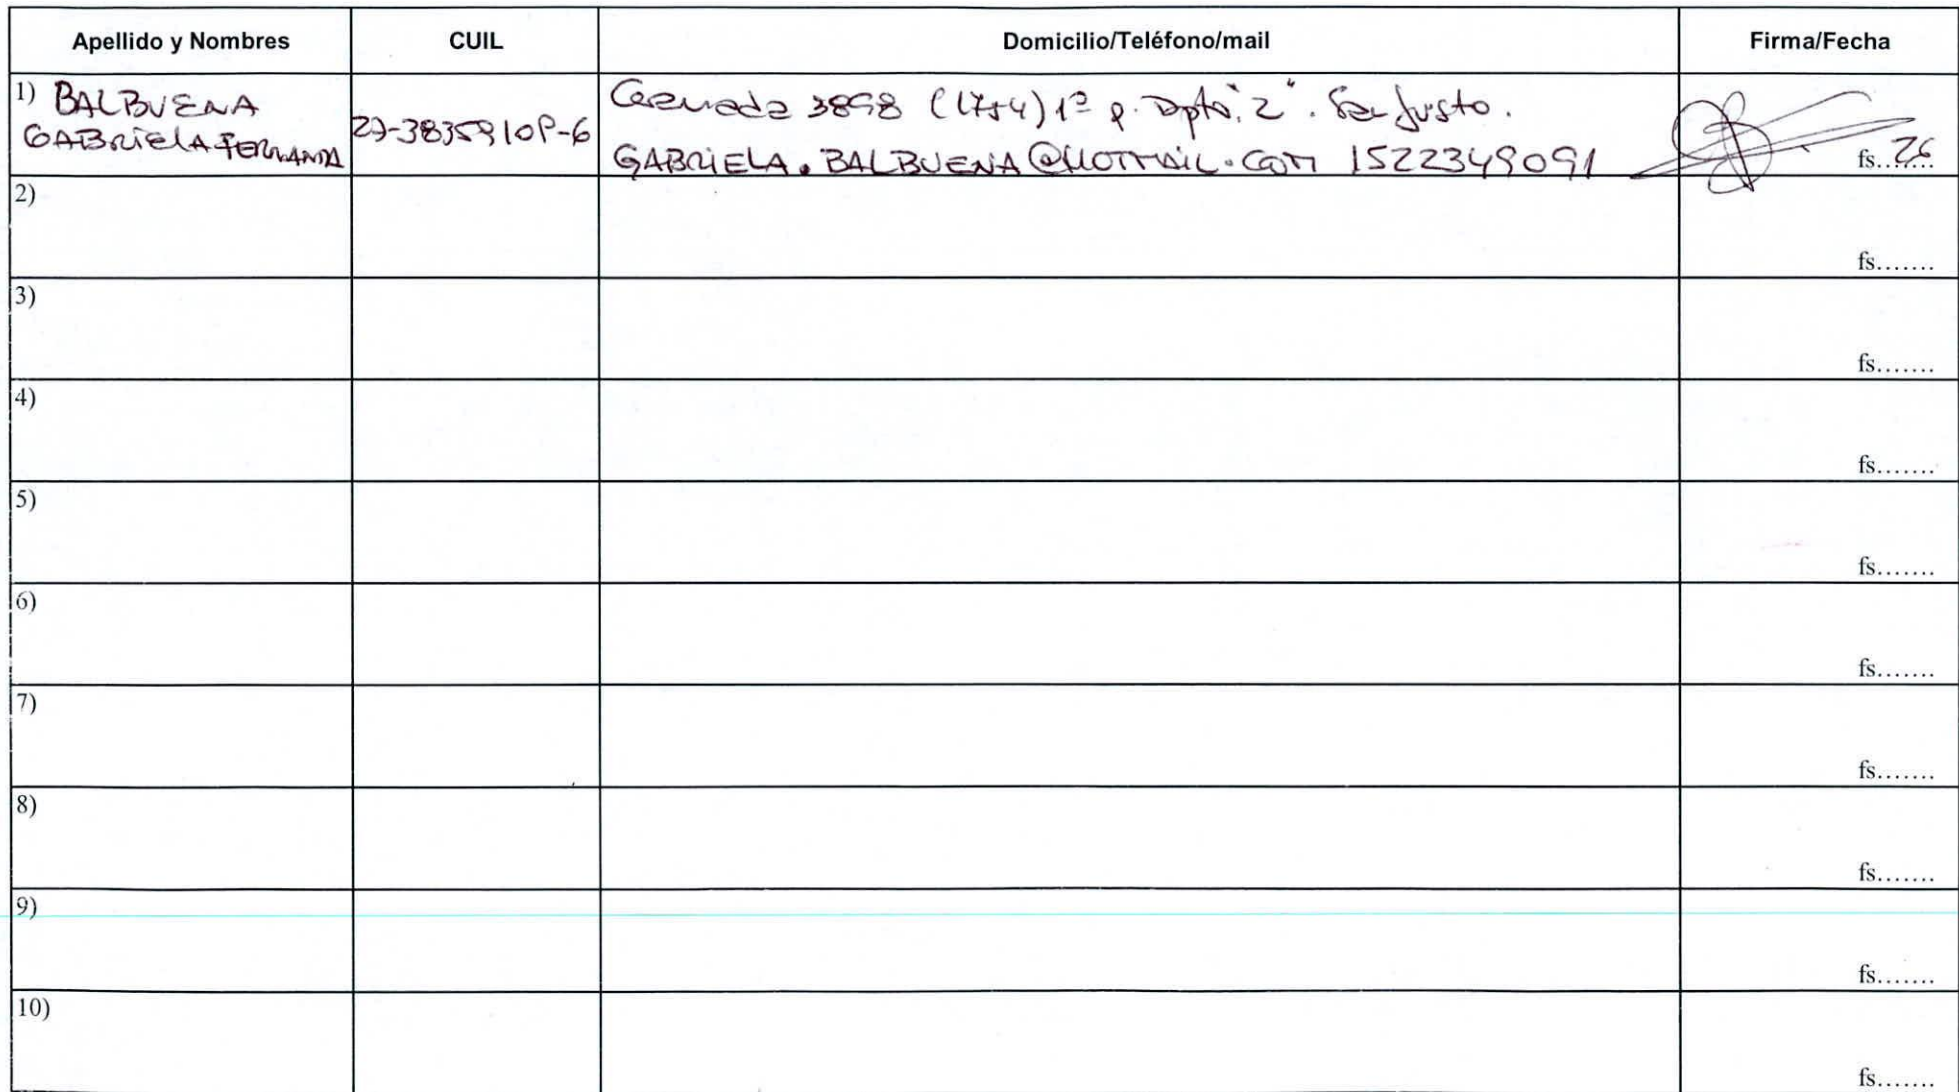 Apellido y Nombres CUIL Domicilio/Teléfono/mail Firma/Fecha
1) BALBUENA
GABRIELA FERNANDA
3898 1º p. Dpto. "2". San Justo.
GABRIELA.BALBUENA@HOTMAIL.COM 1522349091
fs..26
2)
fs.......
3)
fs.......
4)
fs.......
5)
fs.......
6)
fs.......
7)
fs.......
8)
fs.......
9)
fs.......
10)
fs.......